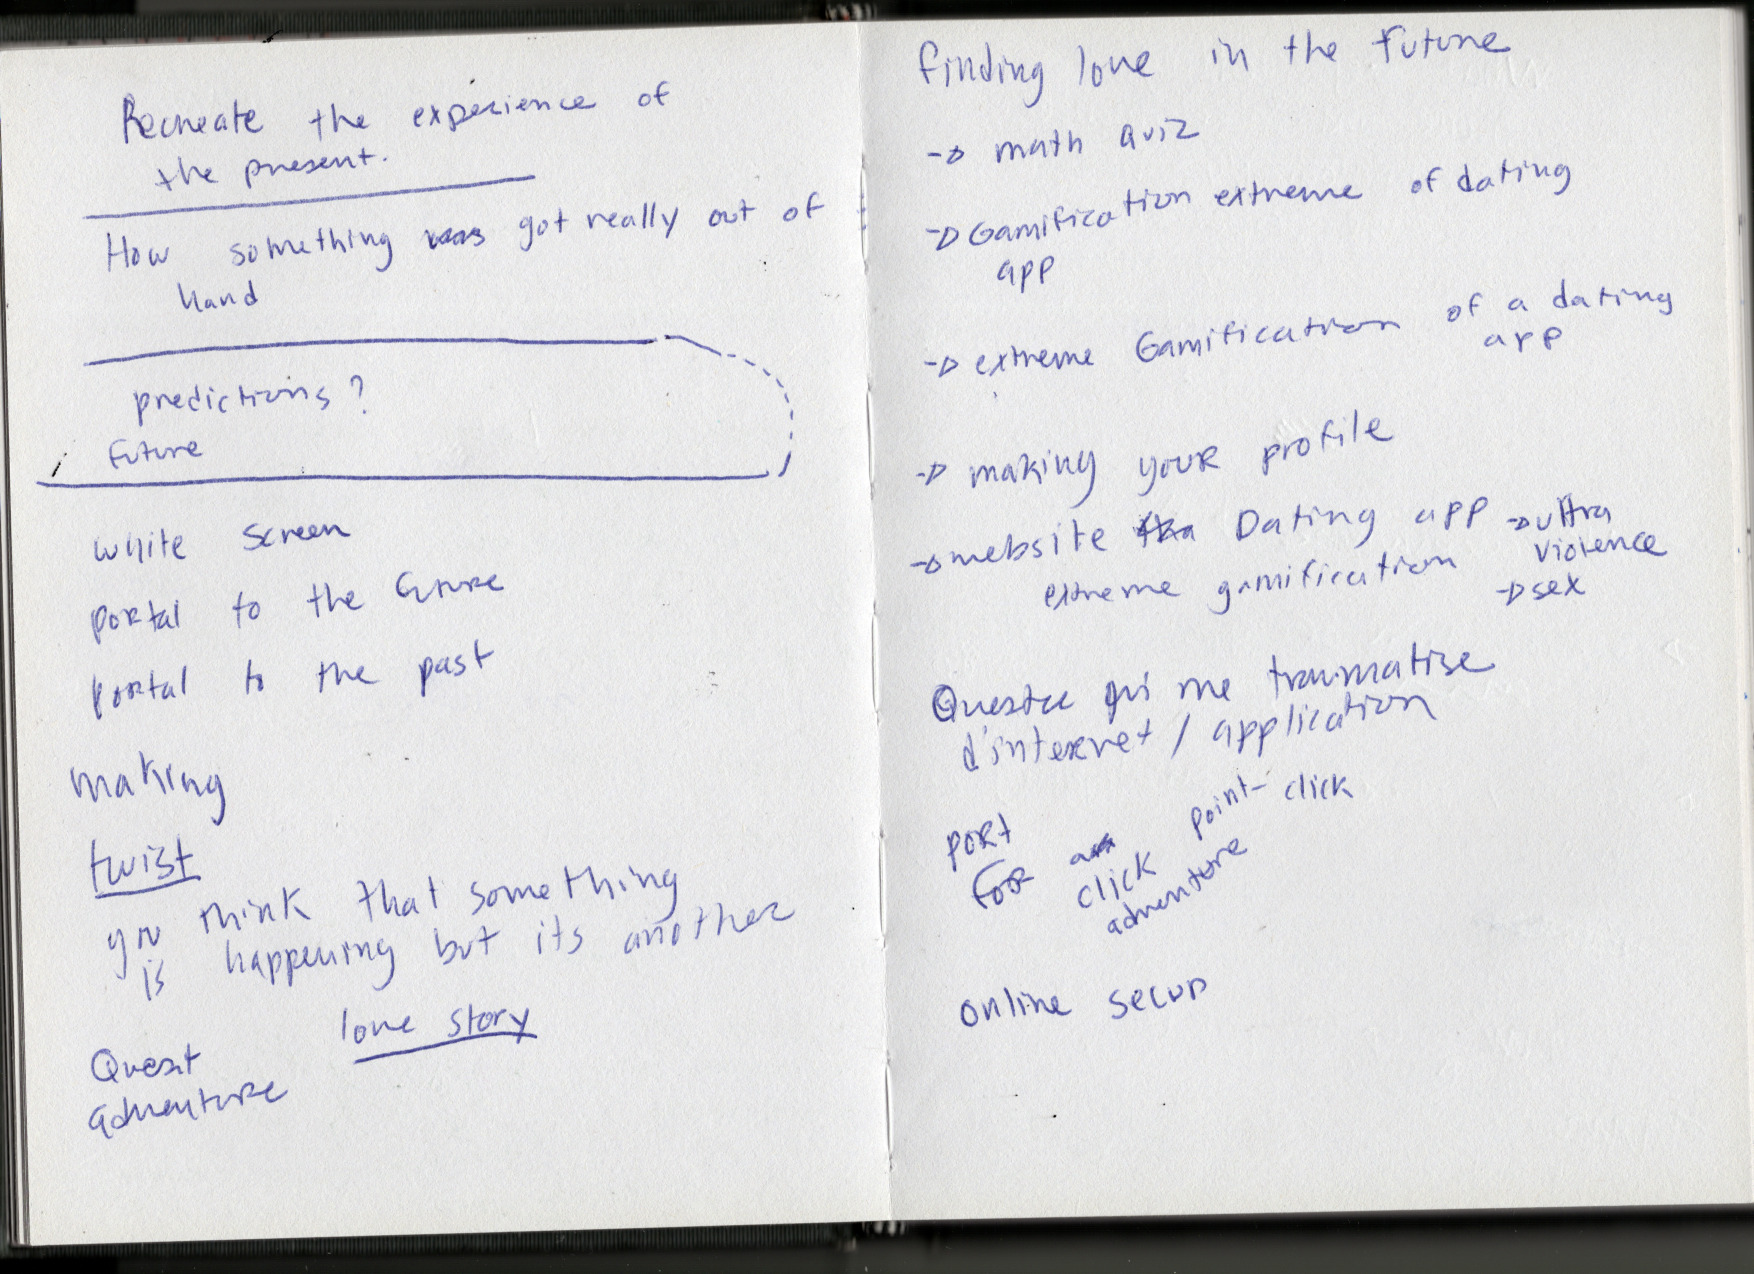 Recreate the experience of
the present.
How something was got really out of
hand
predictions?
Future
white screen
portal to the future
portal to the past
making
twist
you think that something
is happening but its another
love story
Quest
adventure
finding love in the future
→ math quiz
→ Gamification extreme of dating
app
→ extreme Gamification of a dating
app
→ making your profile
→ website Dating app → ultra
violence
extreme gamification → sex
Questce qui me traumatise
d'internet / application
point-click
port
for
click
adventure
online